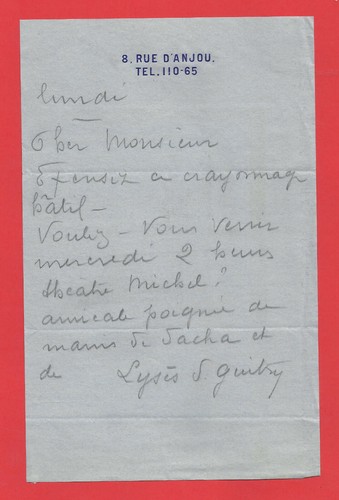 8. RUE D'ANJOU.
TEL. 110-65
lundi
Cher Monsieur
Excusez ce crayonnage
hâtif -
Voulez-Vous venir
mercredi 2 heures
théâtre Michel?
amicale poignée de
mains de Sacha et
de Lysès S. Guitry